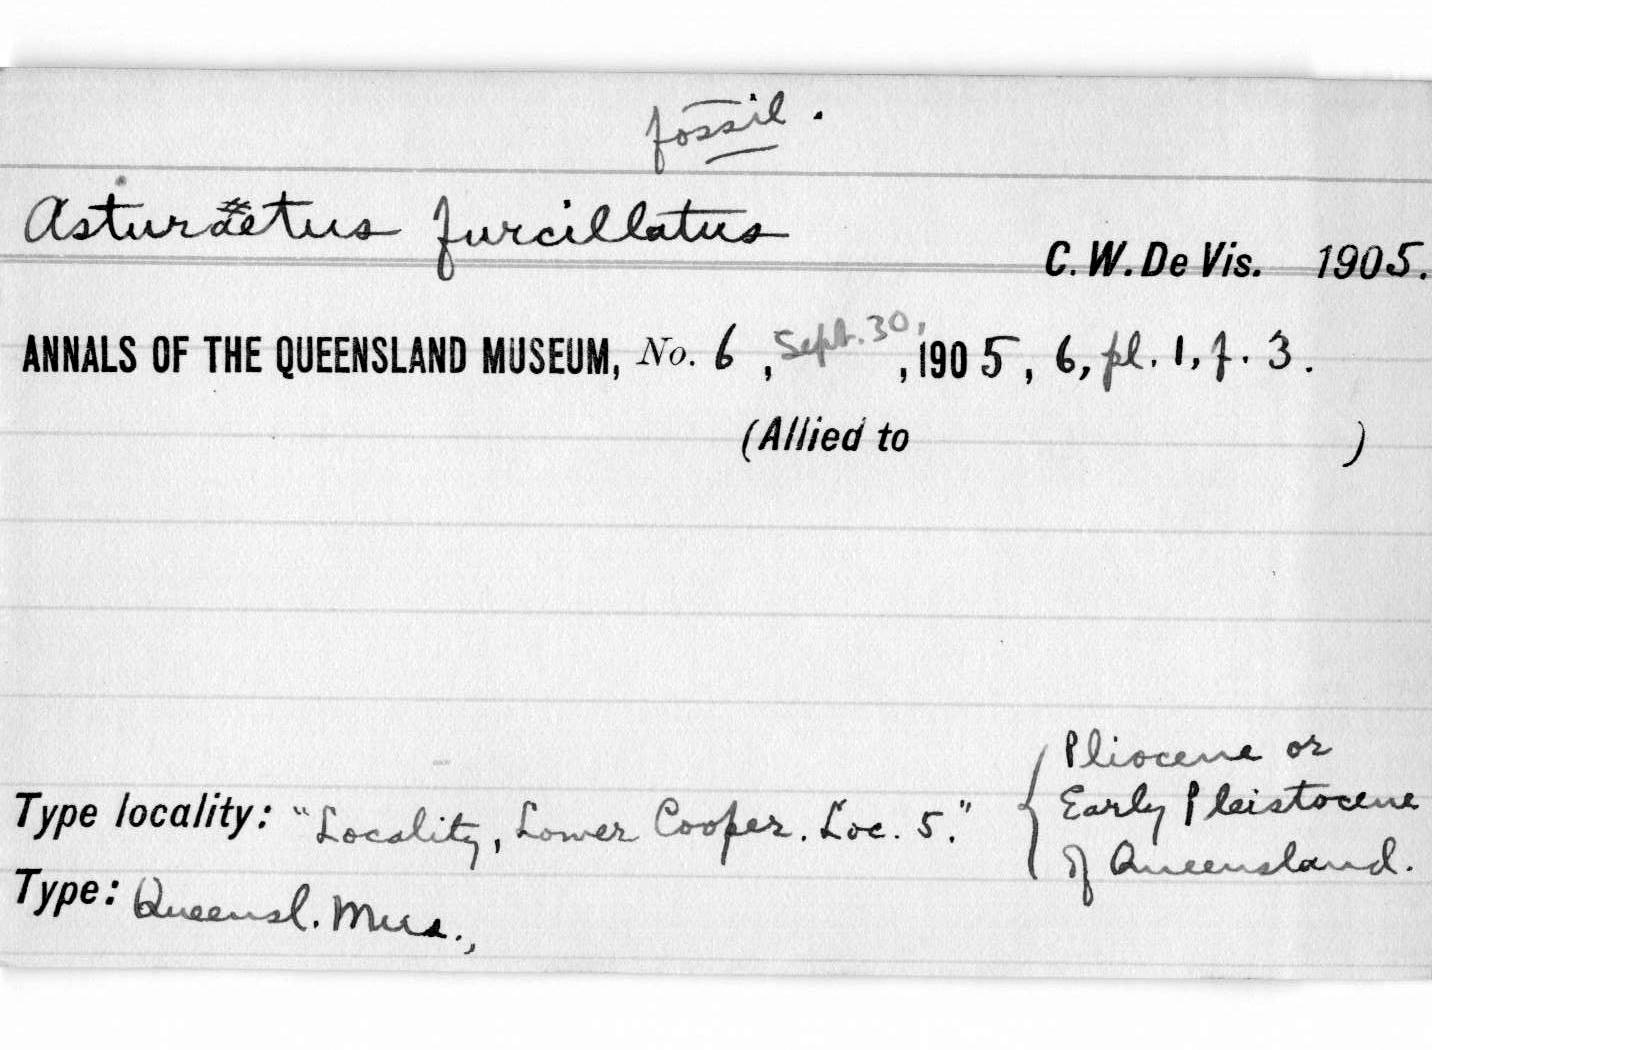 fossil.
Asturaetus furcillatus
C. W. De Vis. 1905.
ANNALS OF THE QUEENSLAND MUSEUM, No. 6, Sept. 30, , 1905, 6, pl. 1, f. 3.
(Allied to )
Type locality: "Locality, Lower Cooper. Loc. 5." { Pliocene or
Early Pleistocene
of Queensland.
Type: Queensl. Mus.,